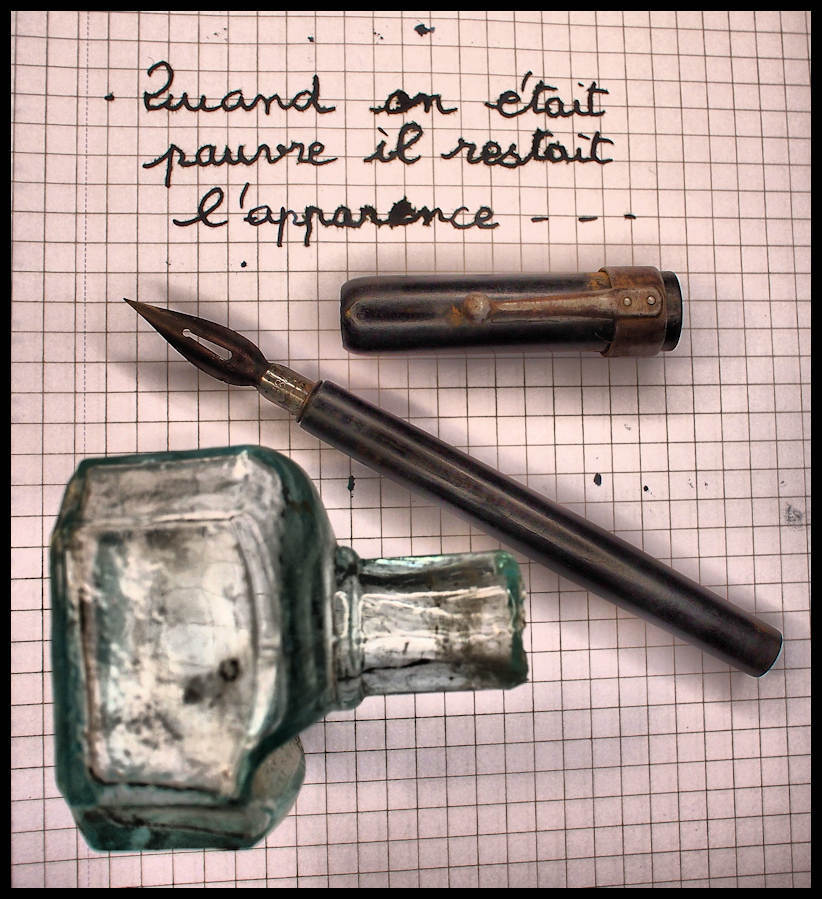 Quand on était
pauvre il restait
l'apparence - - -